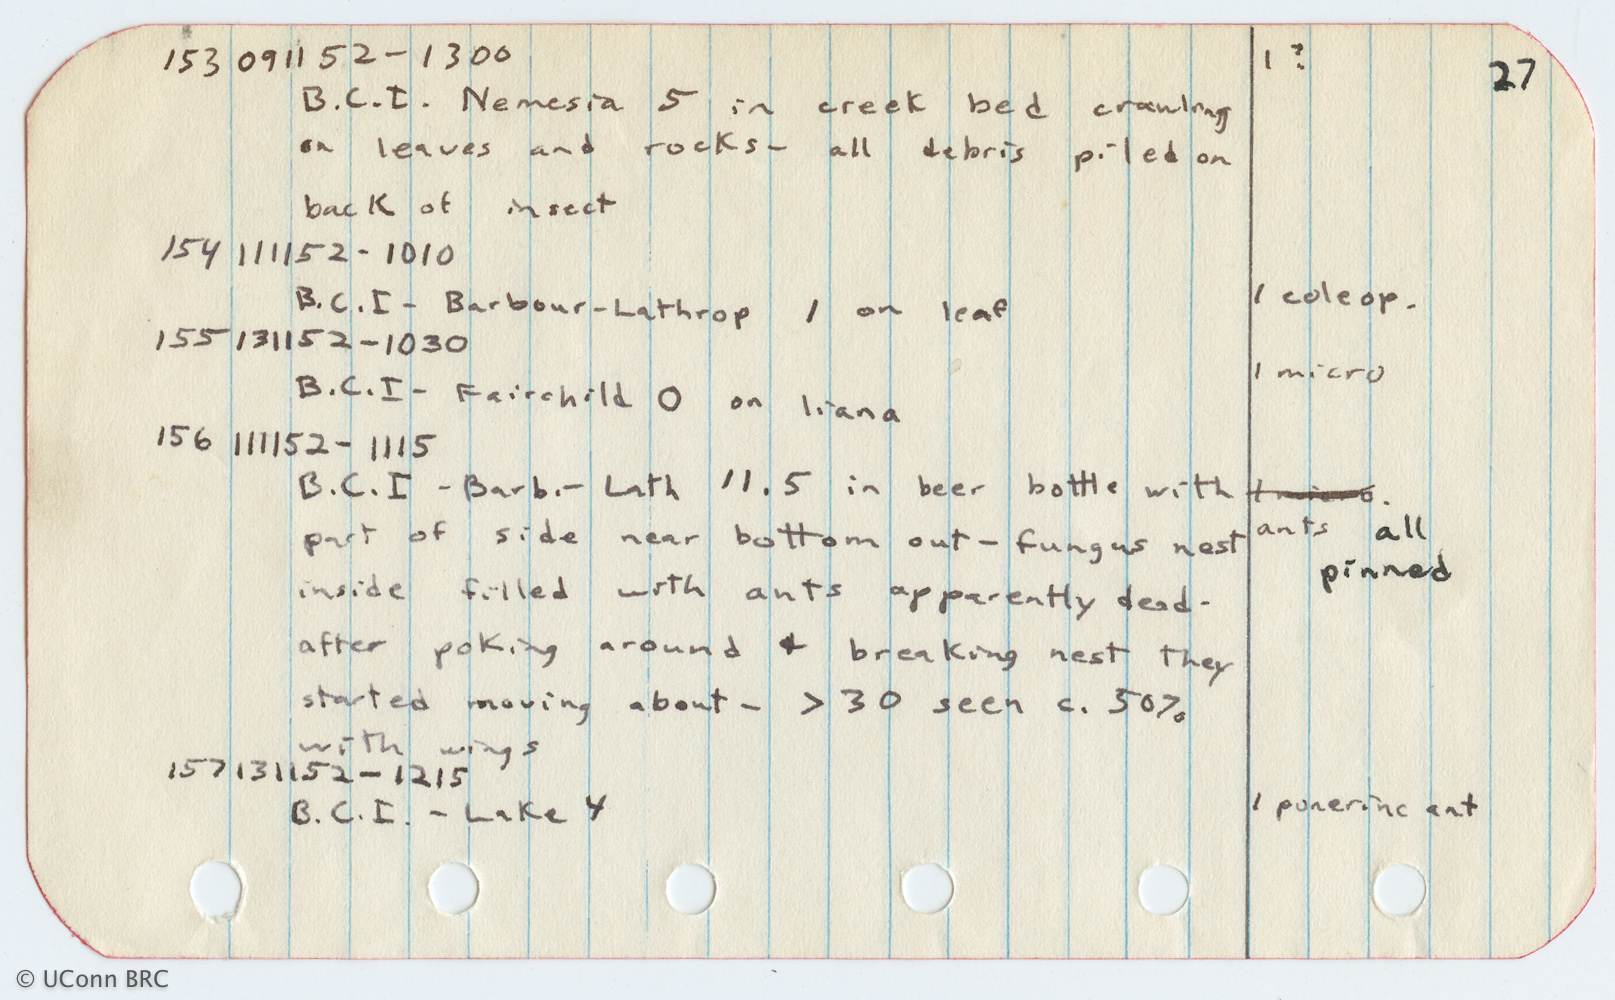 27
153 091152-1300 1?
B.C.I. Nemesia 5 in creek bed crawling
on leaves and rocks- all debris piled on
back of insect
154 111152-1010
B.C.I- Barbour-Lathrop 1 on leaf 1 coleop.
155 131152-1030
B.C.I- Fairchild 0 on liana 1 micro
156 111152-1115
B.C.I -Barb.- Lath 11.5 in beer bottle with
part of side near bottom out- fungus nest ants all
pinned
inside filled with ants apparently dead-
after poking around & breaking nest they
started moving about- >30 seen c. 50%
with wings
157 131152-1215
B.C.I. - Lake 4 1 ponerine ant
© UConn BRC